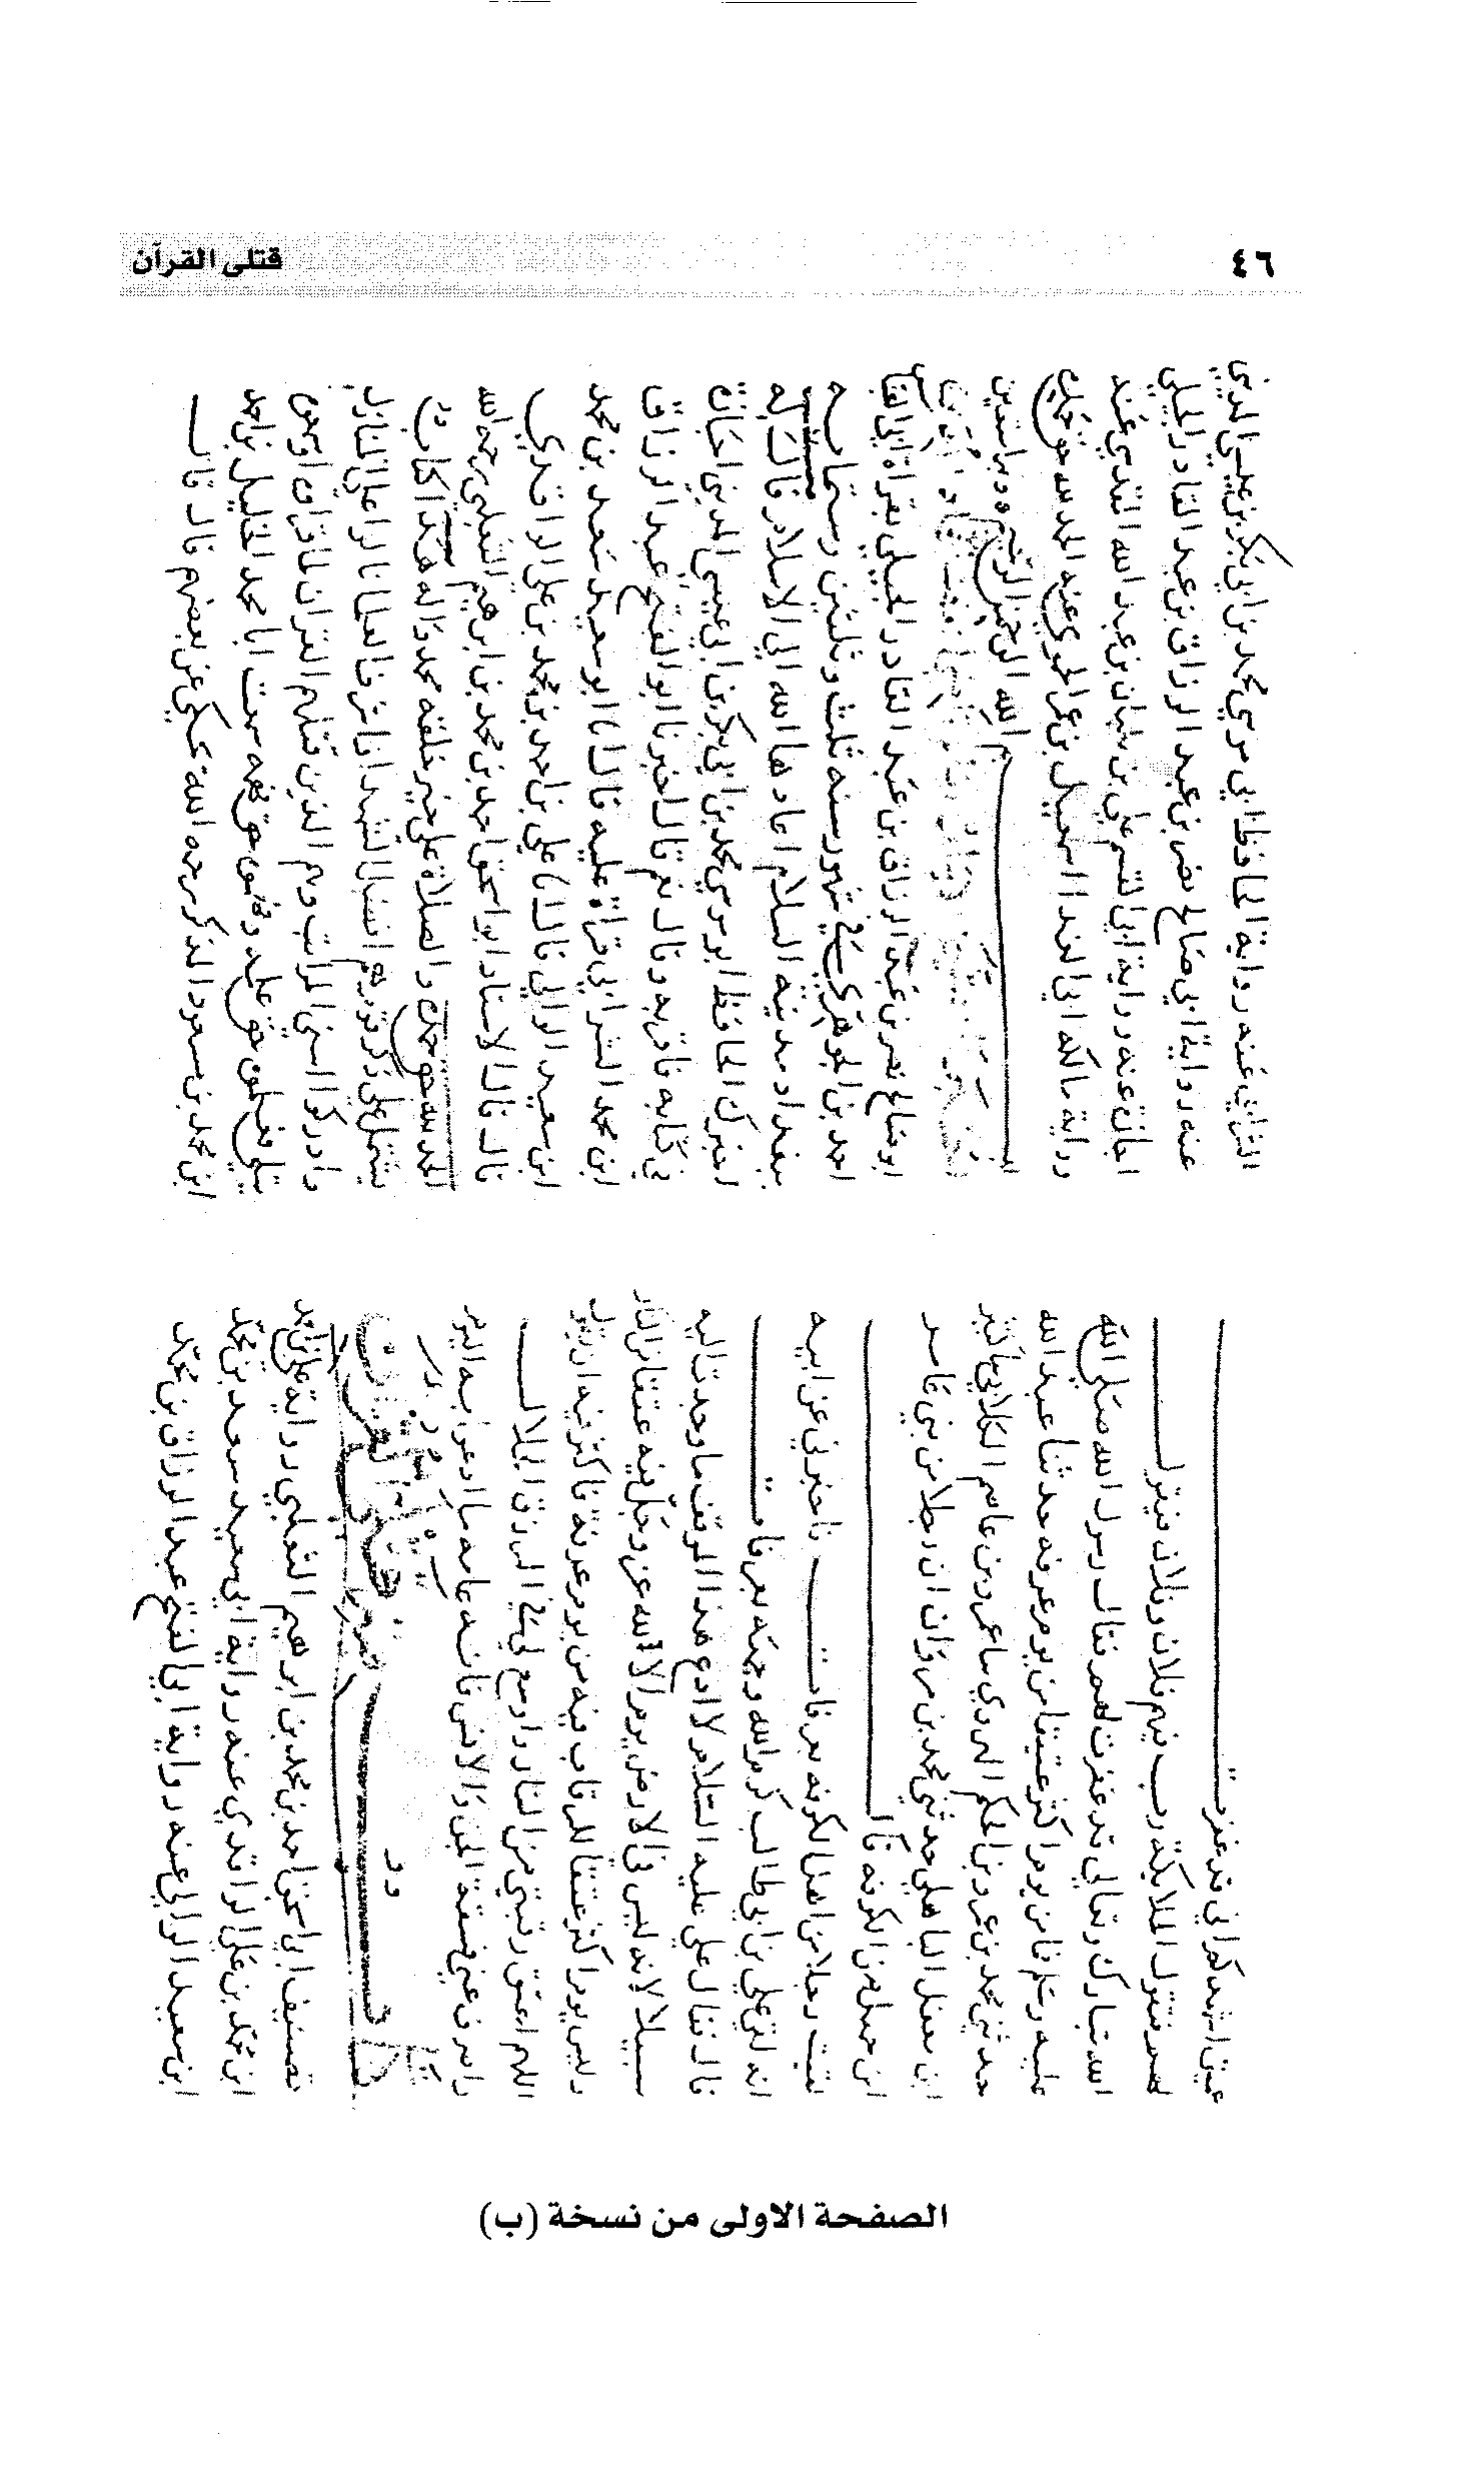 ٤٦ قتلى القرآن
اشهدكم اني قد غفرت
لهم فتقول الملايكة رب فيهم فلان وفلان فيقول
الله تبارك وتعالى قد غفرت لهم فقال رسول الله صلى الله
عليه وسلم فما من يوم اكثر عتيقا من يوم عرفة حدثنا عبد الله
حدثني محمد بن عمرو بن الحكم الهروي عمرو بن عاصم الكلابي
ابن معقل الباهلي حدثني محمد بن مروان ان رجلا من بني عامر
ابن من الكوفة قال
لقيت رجلا من اهل الكوفة بعرفات فاخبرني عن ابيه
انه لقي علي بن ابي طالب كرم الله وجهه بعرفات
قال فقال علي عليه السلام لا ادع هذا الموقف ما وجدت اليه
سبيلا لانه ليس في الارض يوم الا لله عز وجل فيه عتقا من النار
وليس يوم اكثر عتقا للرقاب فيه من يوم عرفة فاكثر فيه ان تقول
اللهم اعتق رقبتي من النار واوسع لي في الرزق الحلال
واصرف عني فسقة الجن والانس فانه عامة ما ادعوا به اليوم
كتاب قتلى القران
تصنيف ابي اسحق احمد بن محمد بن ابرهيم الثعلبي رواية علي بن احمد
ابن محمد بن علي الواقدي عنه رواية ابي سعيد سعد بن محمد
ابن سعيد الوالي عنه رواية ابي الفتح عبد الرزاق بن محمد
الشرابي عنه رواية الحافظ ابي موسى محمد بن ابي بكر بن عيسى المديني
عنه رواية ابي صالح نصر بن عبد الرزاق بن عبد القادر الجيلي
اجازة عنه رواية ابي القسم علي بن بلبان بن عبد الله الناصري عنه
رواية مالكه ابي الفدا اسمعيل بن عمر الحموي عنه الحمد لله حق حمده
بسم الله الرحمن الرحيم وبه استعين
ابو صالح نصر بن عبد الرزاق بن عبد القادر الجيلي بقراة
احمد بن الجوهري في شهور سنة ثلث وثلثين وستماية
ببغداد مدينة السلام اعادها الله الى الاسلام قال له
اخبرك الحافظ ابو موسى محمد بن ابي بكر بن ابي عيسى المديني اجازة
في كتابه فاقر به وقال نعم قال اخبرنا ابو الفتح عبد الرزاق
ابن محمد الشرابي قراة عليه قال انا ابو سعيد سعد بن محمد
ابن سعيد الوالي قال انا علي بن احمد بن محمد بن علي الواقدي
قال قال الاستاد ابو اسحق احمد بن محمد بن ابرهيم الثعلبي رحمه الله
الحمد لله حق حمده والصلاة على خير خلقه محمد واله هكذا كتاب
يشتمل على ذكر قوم هم افضل الشهدا واشرف العلما نالوا اعلى المنازل
وادركوا اسنى المراتب وهم الذين قتلهم القران لما قراوه او سمعوه
يتلى فعلموه حق علمه وفهموه حق فهمه سمعت ابا محمد بن احمد
ابن محمد بن مسعود المذكر رحمه الله يحكي عن بعضهم قال قال
الصفحة الاولى من نسخة (ب)